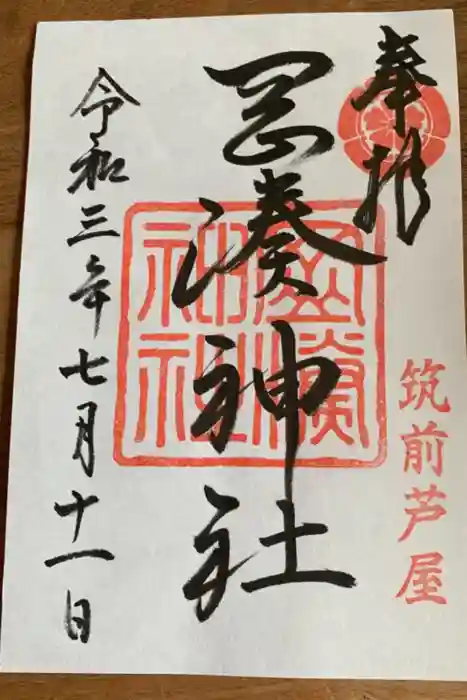 奉拝
筑前芦屋
岡湊神社
岡湊
神社
令和三年七月十一日